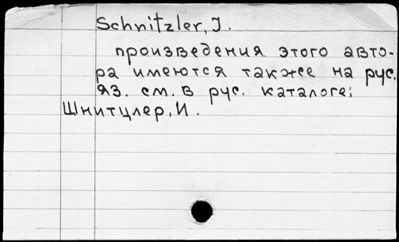 Schnitzler, J.
произведения этого авто-
ра имеются также на рус.
яз. см. в рус. каталоге:
Шнитцлер, И.